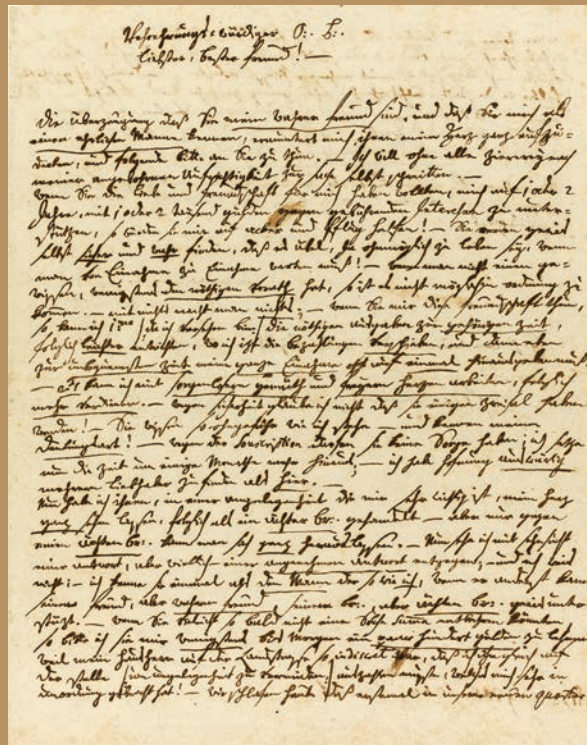 Verehrungswürdiger O:. B:.
liebster, bester freund! —
die Überzeugung daß Sie mein wahrer freund sind, und daß Sie mich als
einen ehrlichen Manne kennen, ermuntert mich ihnen mein Herz ganz aufzu=
decken, und folgende bitte an Sie zu thun. — Ich will ohne alle Ziererey nach
meiner angebohrnen Aufrichtigkeit zur sache selbst schreiten. —
Wenn Sie die liebe und freundschaft für mich haben wollten, mich auf 1 oder 2
Jahre, mit 1 oder 2 tausend gulden gegen gebührenden Interessen zu unter=
stützen, so würden sie mir auf acker und Pflug helfen! — Sie werden gewis
selbst sicher und wahr finden, daß es übel, ja ohnmöglich zu leben sey, wenn
man von Einnahme zu Einnahme warten muß! — wenn man nicht einen ge=
wissen, wenigstens den nöthigen vorath hat, so ist es nicht möglich in ordnung zu
kommen. — mit nichts macht man nichts; — wenn Sie mir diese freundschaft thun,
so kann ich 1:mo (da ich versehen bin) die nöthigen ausgaben zur gehörigen zeit,
folglich leichter entrichten, wo ich izt die bezahlungen verschieben, und dann eben
zur unbequemsten zeit meine ganze Einnahme oft auf einmal hinausgeben muß.
— 2:do kann ich mit sorgenlosern gemüth und freyern herzen arbeiten, folglich
mehr verdienen. — wegen sicherheit glaube ich nicht daß sie einigen zweifel haben
werden! — Sie wissen so ohngefähr wie ich stehe — und kennen meine
denkungsart! — wegen der souscription dürfen sie keine Sorge haben; ich setze
nun die zeit um einige Monathe mehr hinaus; — ich habe hofnung auswärtig
mehrere liebhaber zu finden als hier. —
Nun habe ich ihnen, in einer angelegenheit die mir sehr wichtig ist, mein herz
ganz sehen lassen, folglich als ein ächter br:. gehandelt — aber nur gegen
einen ächten br:. kann man sich ganz herauslassen. — Nun sehe ich mit sehnsucht
einer antwort, aber wirklich — einer angenehmen antwort entgegen; und ich weis
nicht; — ich kenne sie einmal als den Mann der so wie ich, wenn er anderst kann
seinen freund, aber wahren freund, seinen br:., aber ächten br:. gewis unter=
stüzt. — wenn Sie vieleicht so bald nicht eine solche Summa entbehren könnten,
so bitte ich sie mir wenigstens bis Morgen ein paar hundert gulden zu lehnen,
weil mein hausherr auf der landstrasse so indiscret war, daß ich ihn gleich auf
der stelle (um ungelegenheit zu vermeiden) auszahlen musste, welches mich sehr in
unordnung gebracht hat! — wir schlafen heute das erstemal in unserm neuen quartier